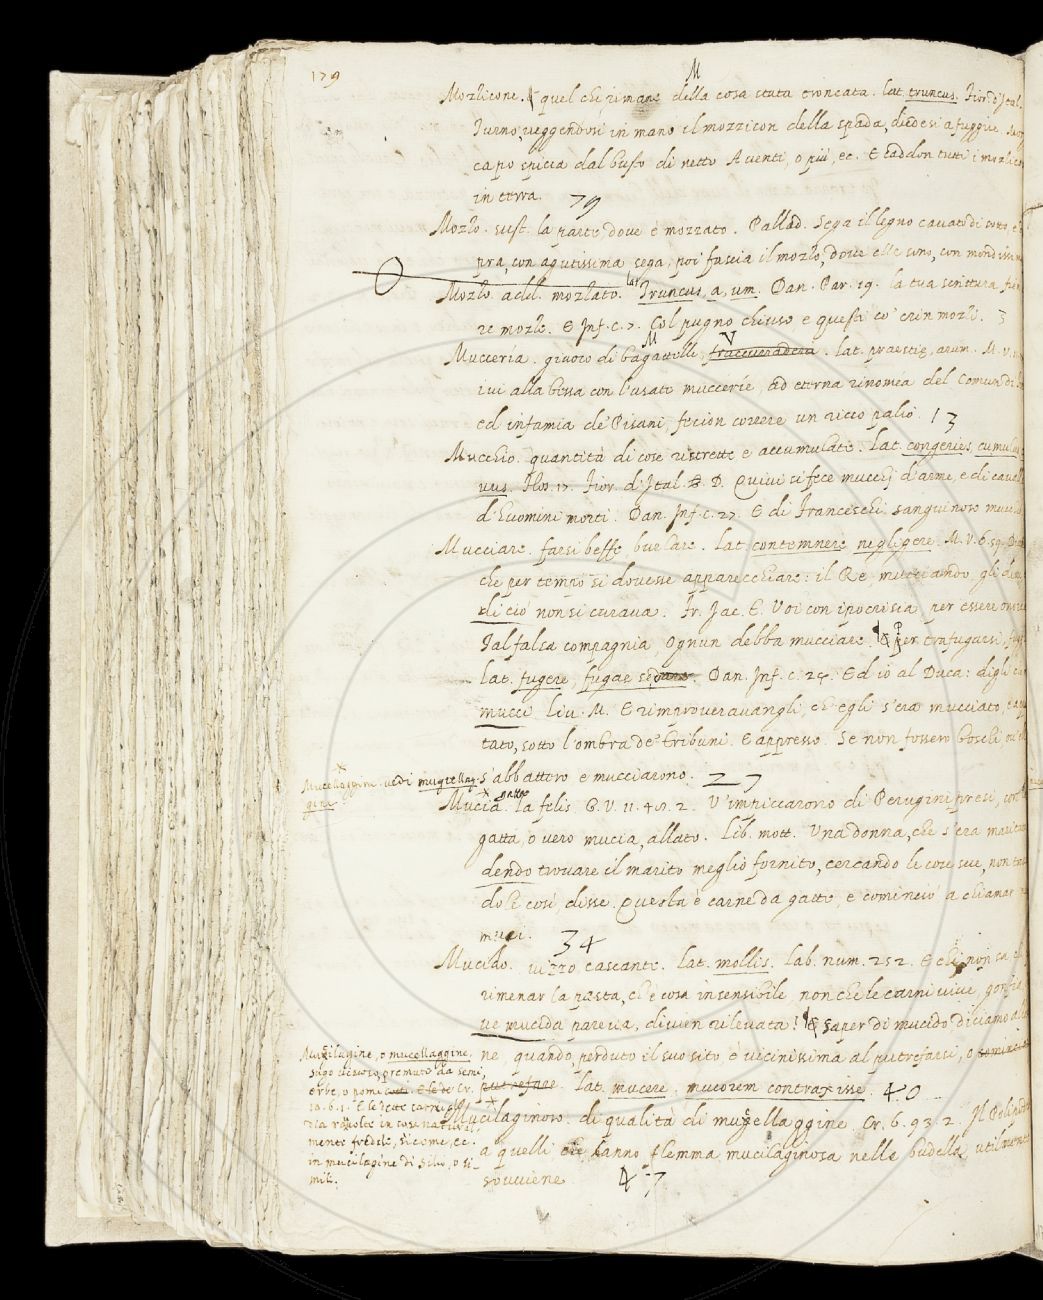 179
M
Mozzicone. quel che rimane della cosa stata troncata. Lat. truncus. Fior. d'Ital.
Turno, veggendosi in mano il mozzicon della spada, diedesi a fuggire.
capo spicca dal busto di netto Aventi, o più, ec. E caddon tutti i mozzico
in terra. 79
Mozzo. sust. la parte dove è mozzato. Pallad. Sega il legno cavato di sotto, e
pra, con agutissima sega, poi fascia il mozzo, dove elle sono, con mondissim
Mozzo. add. mozzato. Lat. Truncus, a, um. Dan. Par. 19. la tua scrittura fien
re mozze. E Inf. c. 7. Col pugno chiuso e questi co' crin mozzi. 3
Mucceria. giuoco di bagattelle, traccuradera. Lat. praestig, arum. M. V.
ivi alla beffa con l'usate muccerie, ad eterna rinomea del Comun di
ed infamia de' Pisani, fecion correre un ricco palio. 13
Mucchio. quantità di cose ristrette e accumulate. Lat. congeries, cumulus
vus. Flos. 17. Fior. d'Ital. D. Quivi si fece mucchj d'arme, e di cavalli
d'huomini morti. Dan. Inf. c. 27. E di Franceschi sanguinoso mucchio
Mucciare. farsi beffe, burlare. Lat. contemnere negligere. M. V. 6. 59.
che per tempo si dovesse apparecchiare: il Re mucciando gli
di ciò non si curava. Fr. Jac. E. Voi con ipocrisia per essere
Tal falsa compagnia, Ognun debba mucciare. & per trafugarsi, fugg
Lat. fugere, fugae se dare. Dan. Inf. c. 24. Ed io al Duca: digli che
mucci Liv. M. E rimproveravangli, ch'egli s'era mucciato, e
tato, sotto l'ombra de' Tribuni. E appresso. Se non fossero boschi ov'elli
s'abbattero e mucciarono. 27
Mucellaggine. vedi mugellag
gine
Mucia. gatta la felis. G. V. 11. 49. 2. V'impiccarono di Perugini presi, con
gatta, o vero mucia, allato. Lib. mott. Una donna, che s'era maritata
dendo trovare il marito meglio fornito, cercando le cose sue, non
dole così, disse. Questa è carne da gatte, e cominciò a chiamar
muci. 34
Mucido. vizzo cascante. Lat. mollis. Lab. num. 252. E chi non sa
rimenar la pasta, ch'è cosa insensibile non che le carni vive gonfia
ve mucida pareva, divien rilevata! & saper di mucido diciamo
ne, quando, perduto il suo sito è vicinissima al putrefarsi, o cominciar
putrefare. Lat. mucere. mucorem contraxisse. 40
Mucilagine, o mucellaggine,
sugo viscoso premuto da semi,
erbe, o pomi cotti. E le de Cr.
menti fredde, sicome, ec.
in mucilagine di silio, o si-
mil.
Mucilaginoso. di qualità di mugellaggine. Cr. 6. 93. 2. Il
a quelli che hanno flemma mucilaginosa nelle budella utilmente
sovviene 47